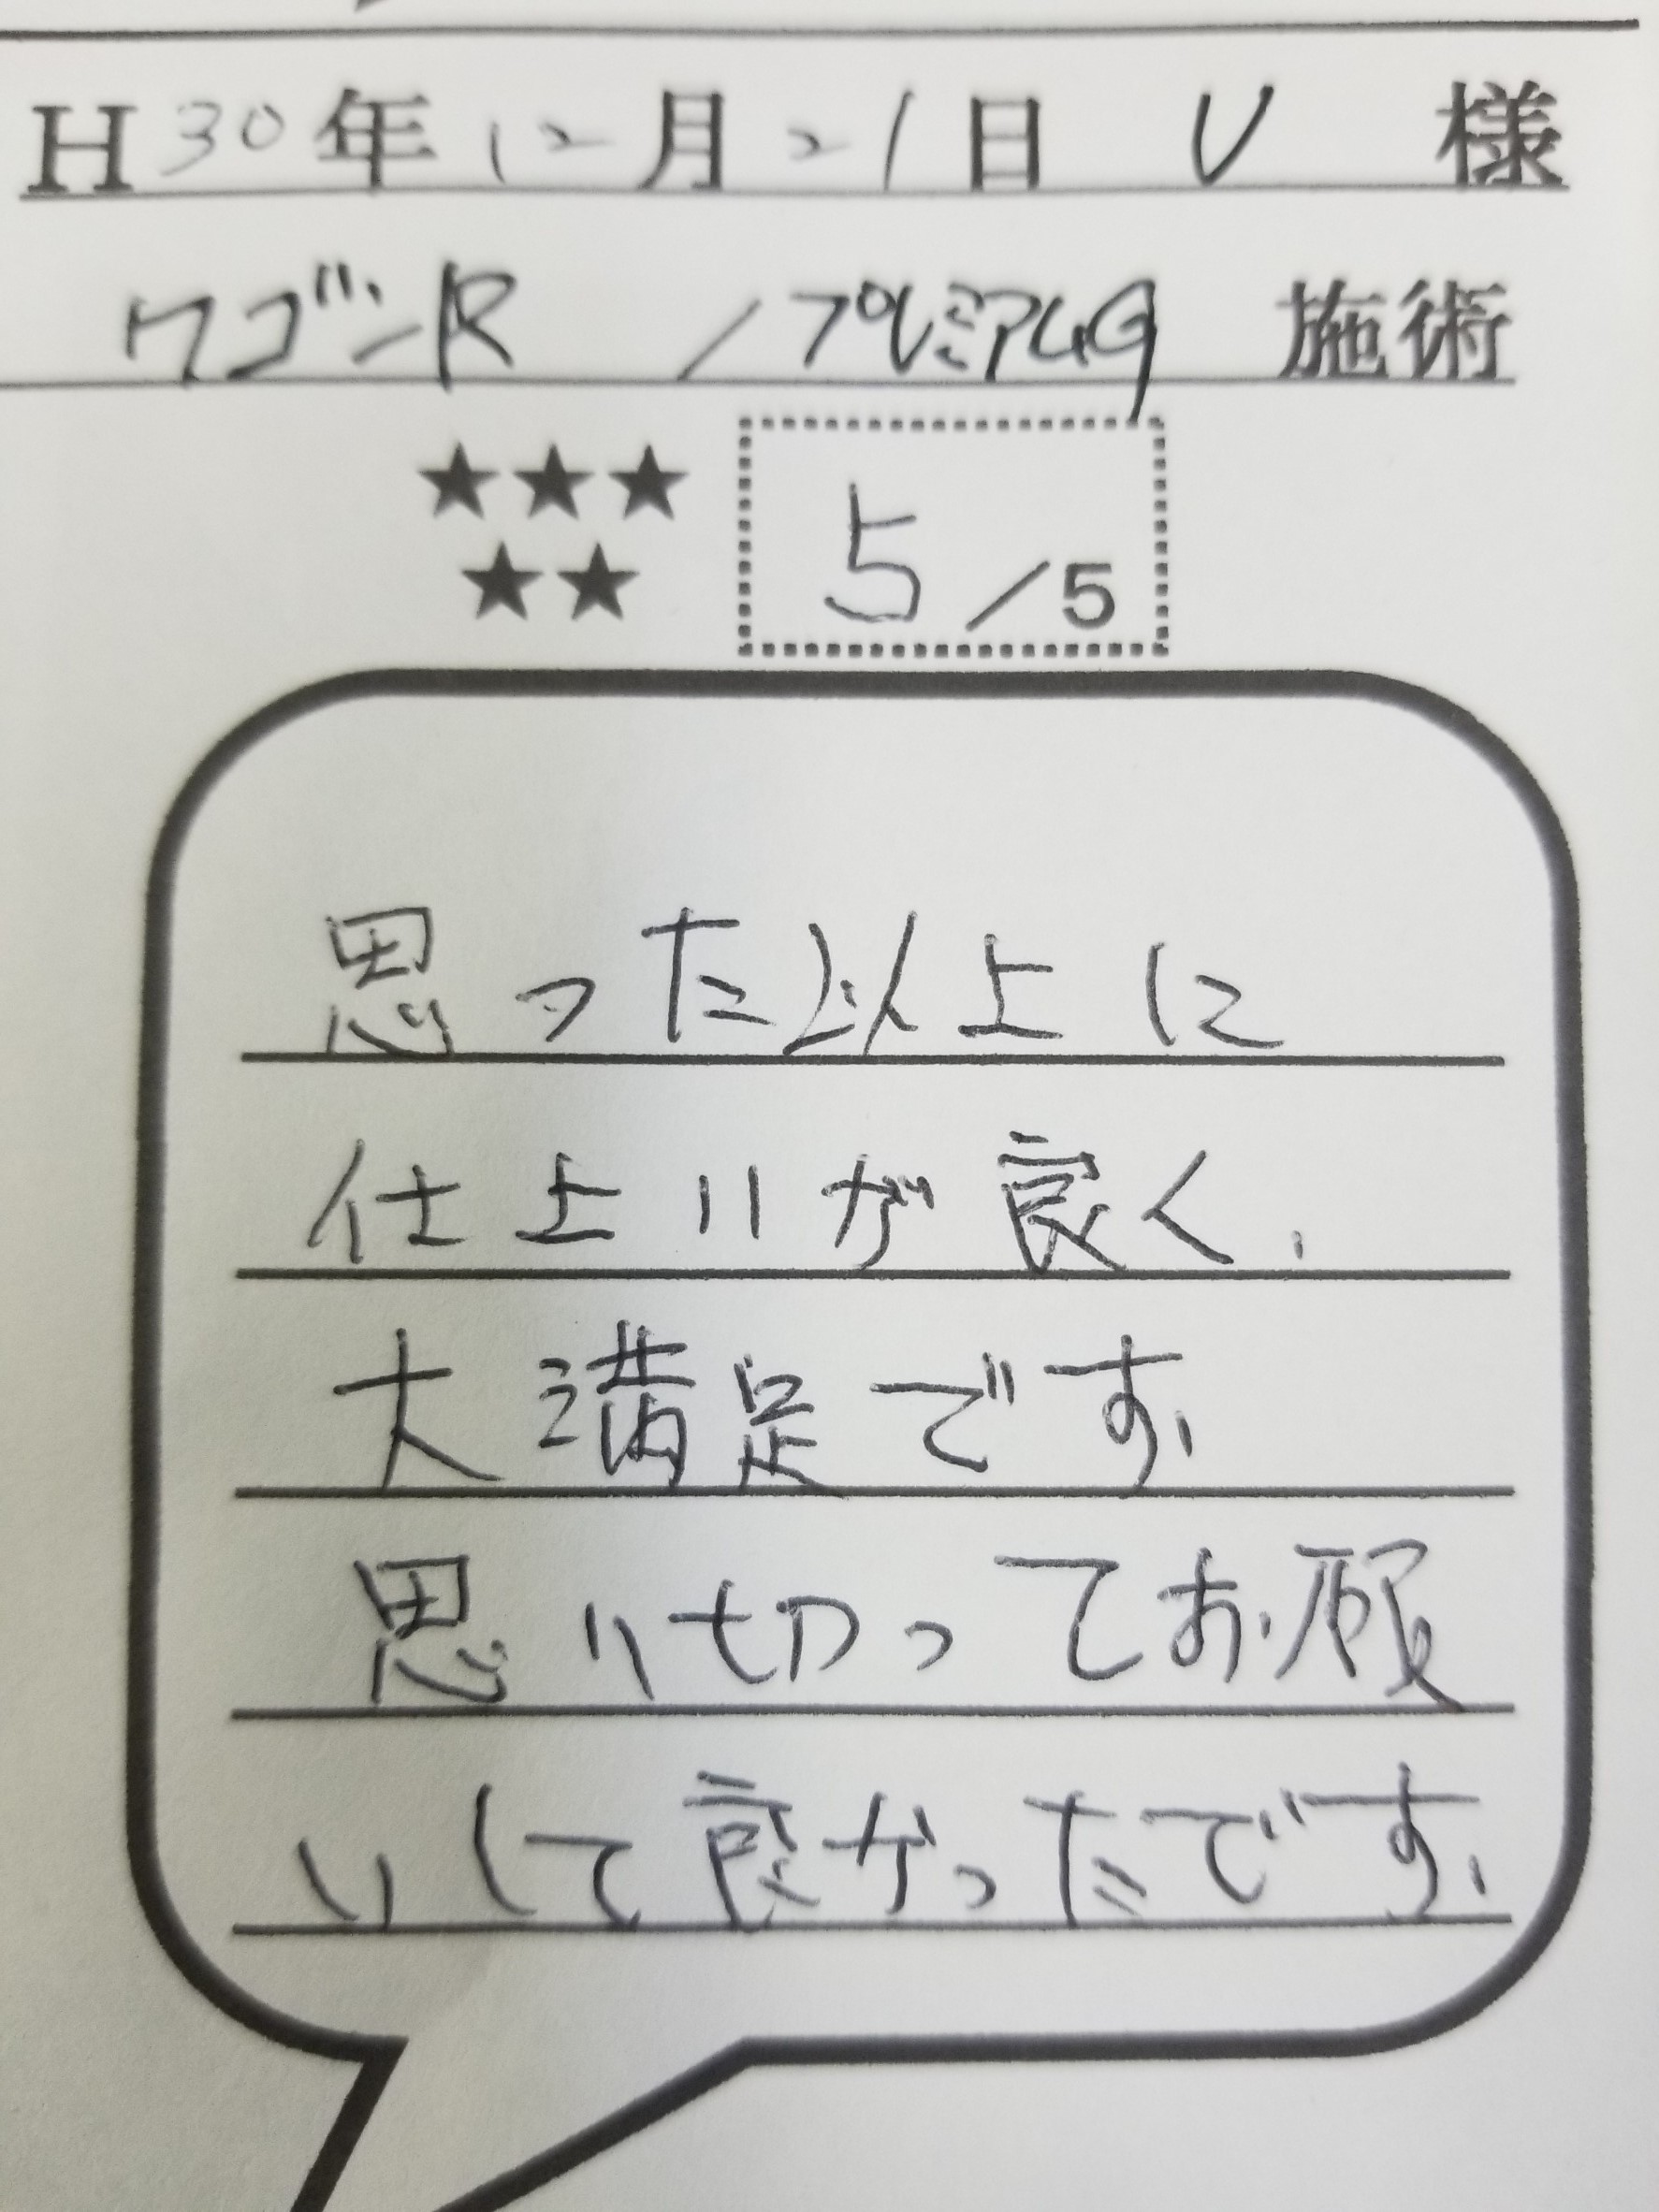 H30年12月21日 U 様
ワゴンR /プレミアムG 施術
★★★
★★
5/5
思った以上に
仕上りが良く、
大満足です。
思い切ってお願
いして良かったです。